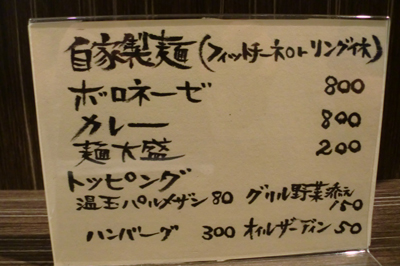 自家製麺(フィットチーネorリングイネ)
ボロネーゼ 800
カレー 800
麺大盛 200
トッピング
温玉パルメザン 80 グリル野菜添え 150
ハンバーグ 300 オイルサーディン 50